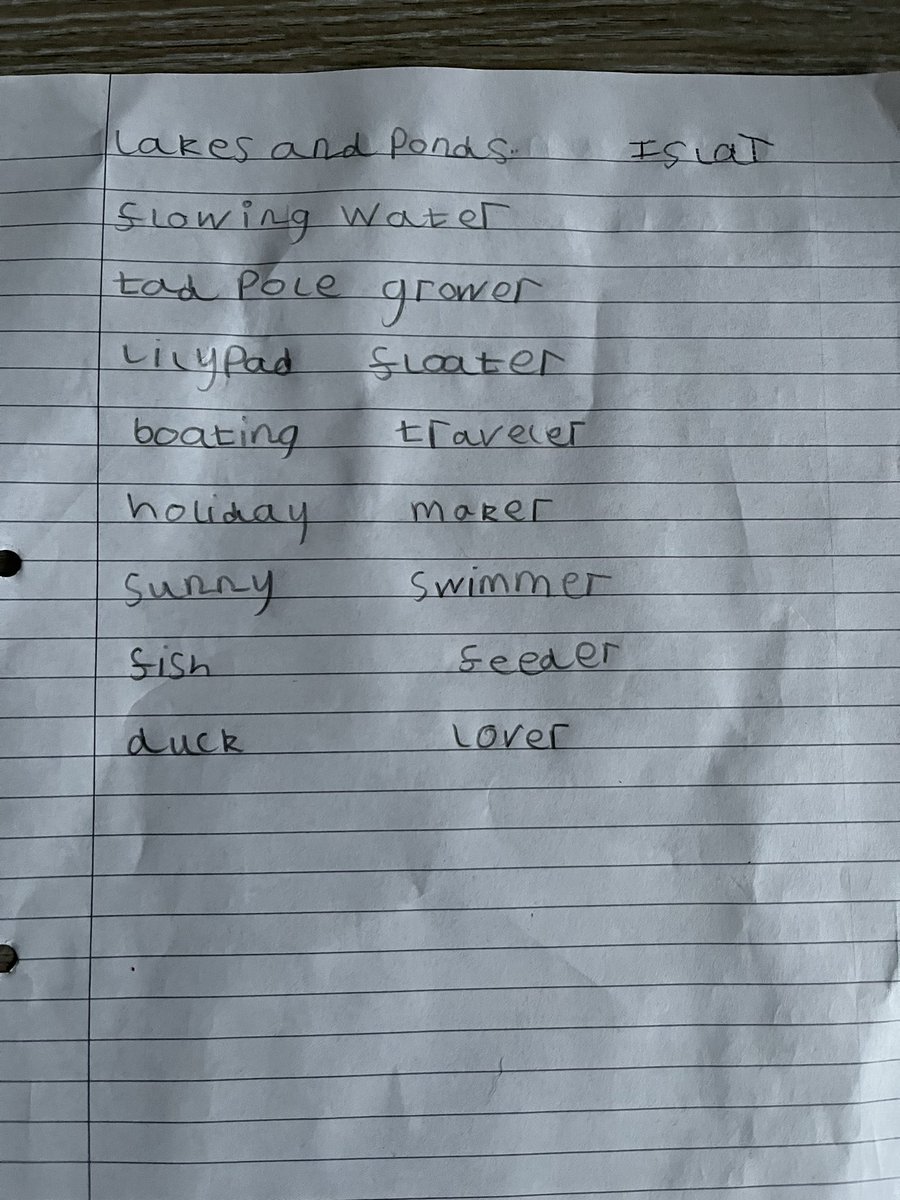 Lakes and Ponds. ISLaT
flowing water
tad Pole grower
LilyPad floater
boating traveler
holiday maker
sunny swimmer
fish feeder
duck Lover